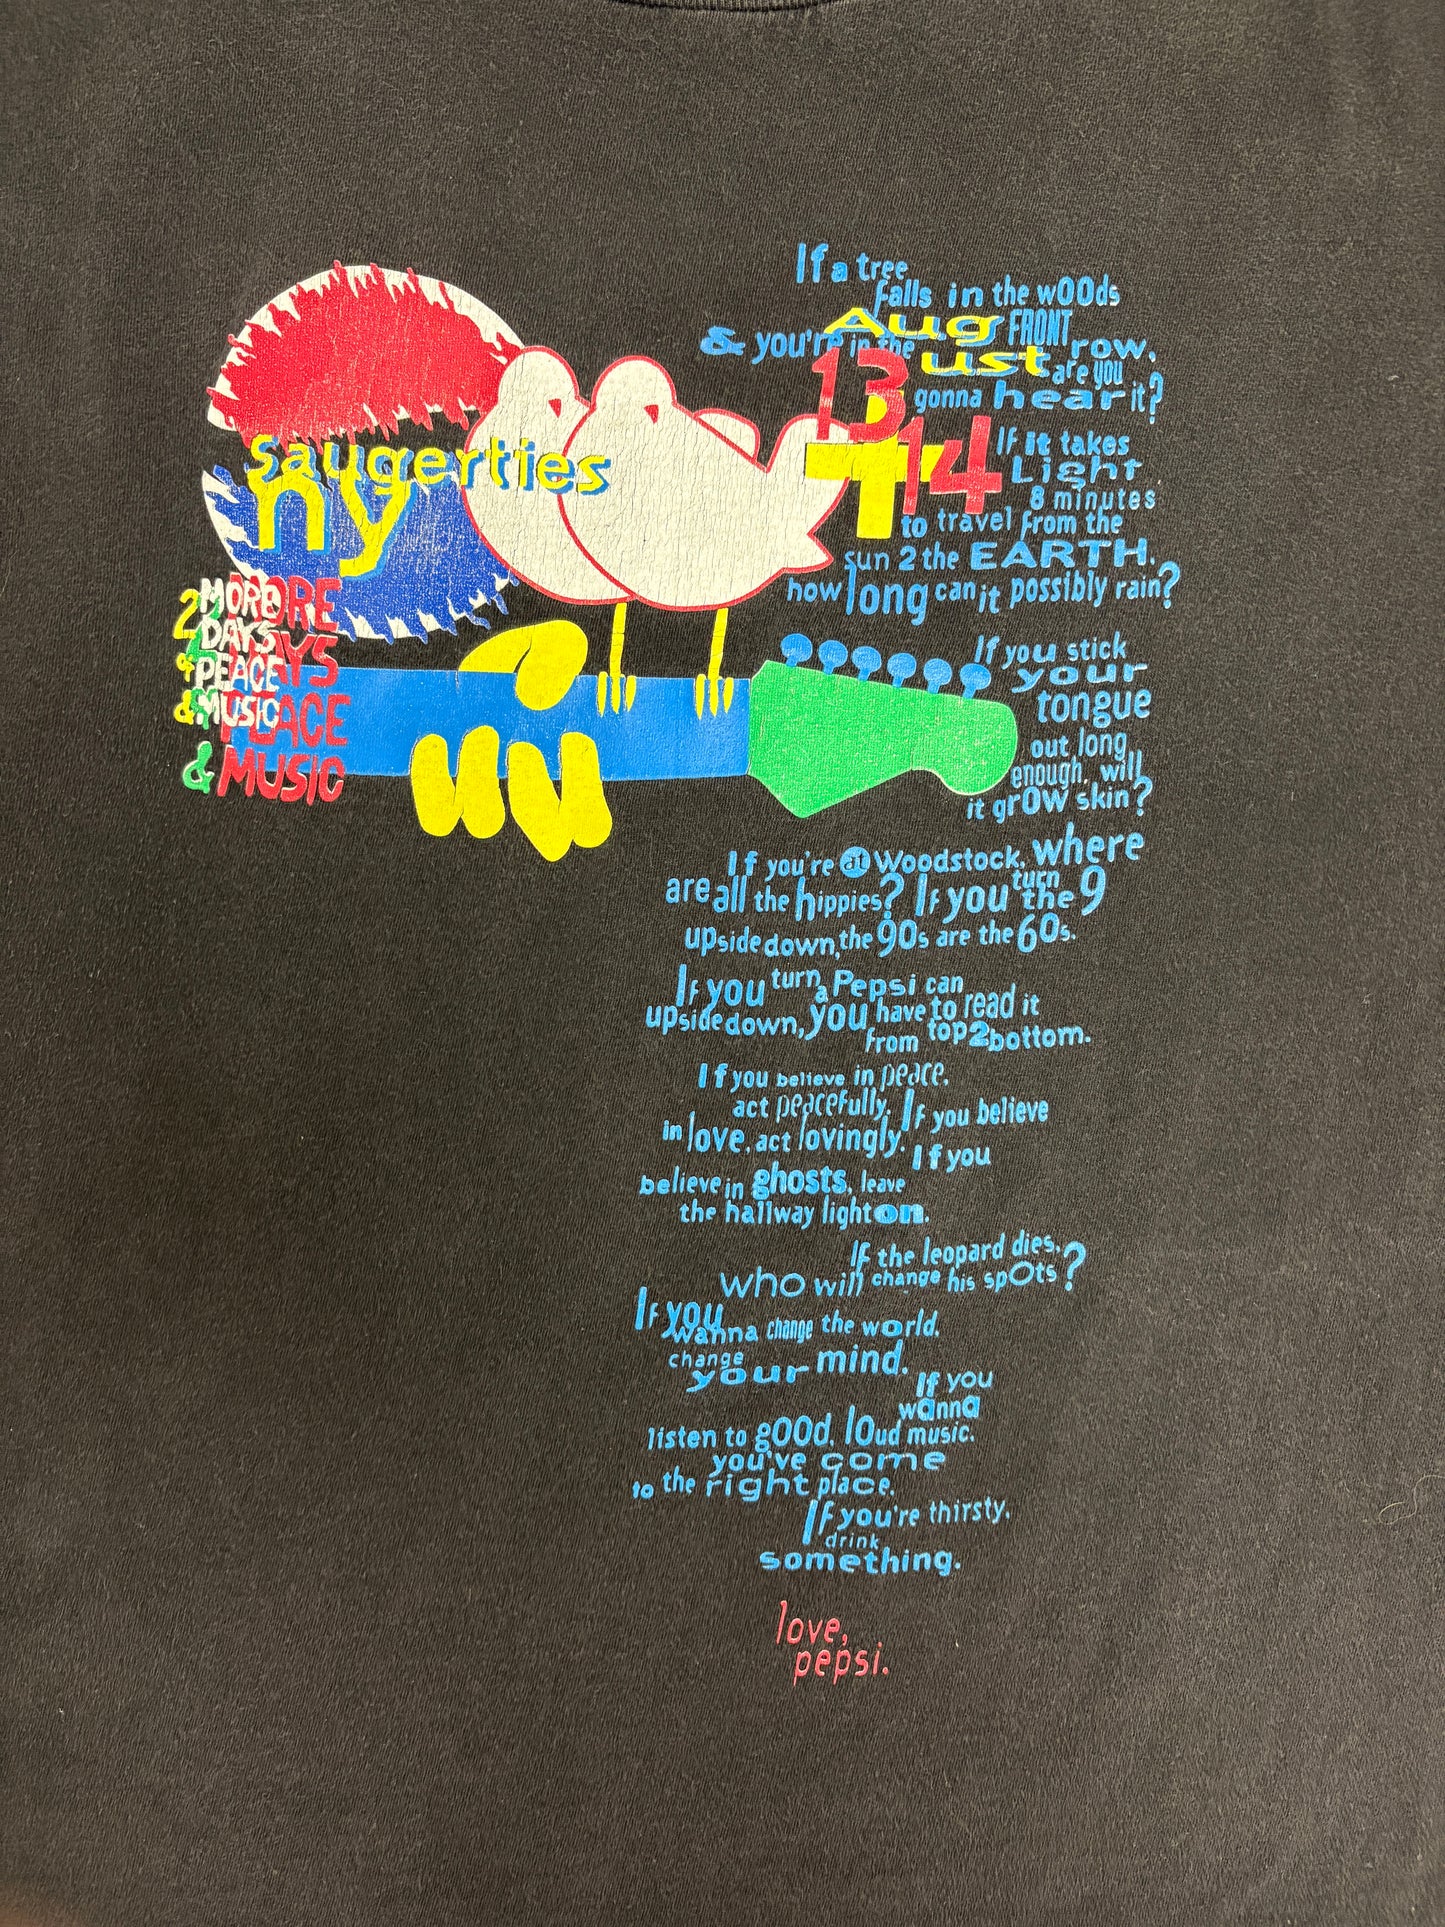 If a tree
falls in the wOOds
& you're in the FRONT row,
are you
gonna hear it?
August
13
+
14
Saugerties
ny
2 MORE
DAYS
of
PEACE
& MUSIC
MORE
DAYS
PEACE
& MUSIC
If it takes
Light
8 minutes
to travel from the
sun 2 the EARTH,
how long can it possibly rain?
If you stick
your
tongue
out long
enough, will
it grOw skin?
If you're at Woodstock, where
are all the hippies? If you turn the 9
upside down, the 90s are the 60s.
If you turn a Pepsi can
upside down, you have to read it
from top 2 bottom.
If you believe in peace,
act peacefully. If you believe
in love, act lovingly. If you
believe in ghosts, leave
the hallway light on.
If the leopard dies,
who will change his spOts?
If you
wanna change the world,
change
your mind.
If you
wanna
listen to gOOd, lOud music,
you've come
to the right place.
If you're thirsty,
drink
something.
love,
pepsi.